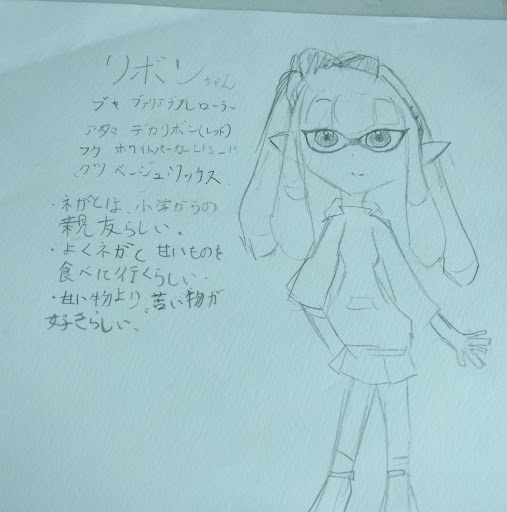 リボンちゃん
ブキ ヴァリアブルローラー
アタマ デカリボン(レッド)
フク ホワイトパーカー
クツ ベージュソックス
・ネガとは、小学からの
親友らしい。
・よくネガと甘いものを
食べに行くらしい。
・甘い物より、苦い物が
好きらしい。